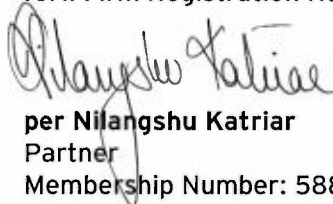 Nilangshu Katriar
per Nilangshu Katriar
Partner
Membership Number: 588